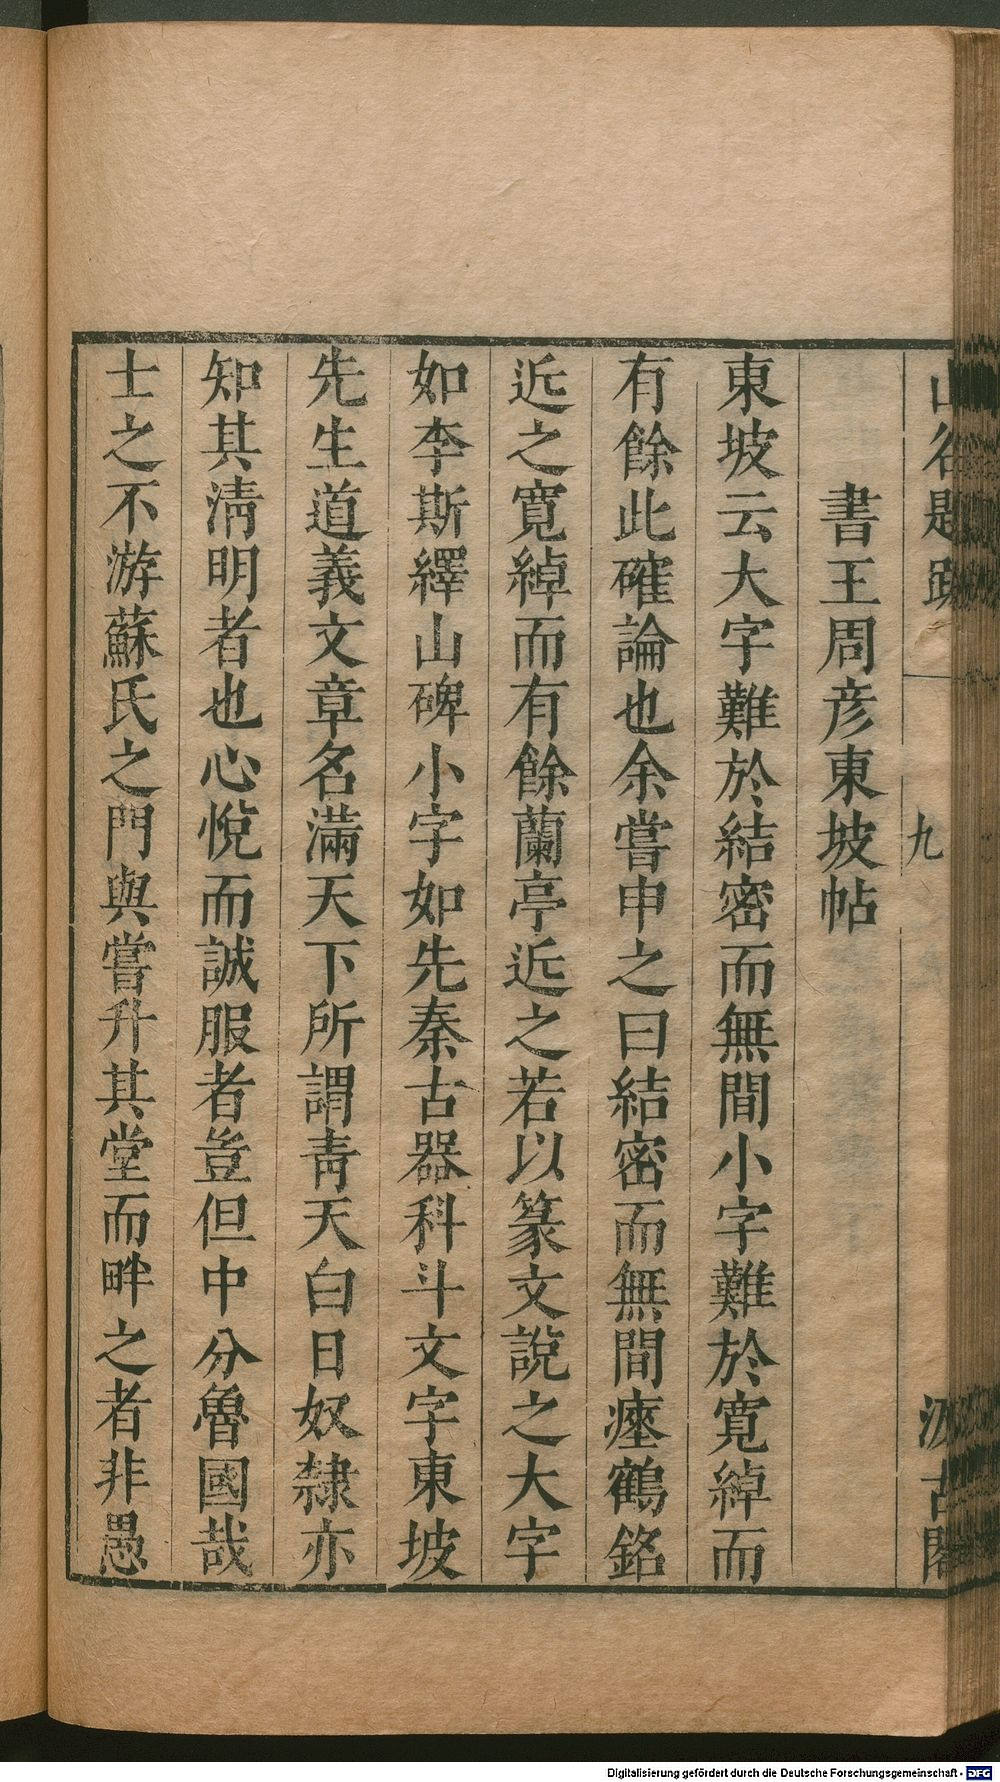 山谷題跋 九 汲古閣
書王周彦東坡帖
東坡云大字難於結密而無間小字難於寛綽而
有餘此確論也余嘗申之曰結密而無間瘞鶴銘
近之寛綽而有餘蘭亭近之若以篆文說之大字
如李斯繹山碑小字如先秦古器科斗文字東坡
先生道義文章名滿天下所謂靑天白日奴隸亦
知其淸明者也心悅而誠服者豈但中分魯國哉
士之不游蘇氏之門與嘗升其堂而畔之者非愚
Digitalisierung gefördert durch die Deutsche Forschungsgemeinschaft - DFG